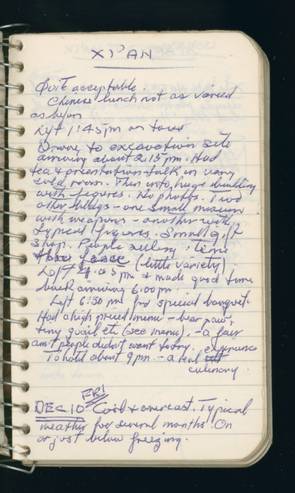 XI'AN
Quite acceptable.
Chinese lunch not as varied
as before
Left 1:45 pm on tour
Drove to excavation site
arriving about 2:15 pm. Had
tea & orientation talk in very
cold room. Then into huge building
with figures. No photos. Two
other bldgs - one small museum
with weapons - another with
typical figures. Small gift
shop. People selling items
(little variety)
Left 4:05 pm & made good time
back arriving 6:00 pm.
Left 6:30 pm for special banquet.
Had a high priced menu - bear paw,
tiny quail etc. (see menu) - a fair
amt people didn't want to try.
To hotel about 9 pm - a real experience
culinary.
FRI
DEC 10 Cool & overcast. Typical
weather for several months. On
or just below freezing.